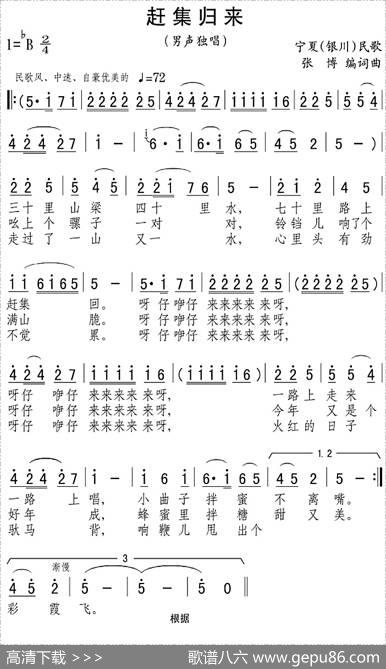 赶集归来
（男声独唱）
1=♭B 2/4
宁夏(银川)民歌
张 博 编词曲
民歌风、中速、自豪优美的 ♩=72
‖:(5·i 7i | 2222 25 | 5·i 27 | 2222 25 | 424 27 | iiii i6 |
424 27 | i - | 6·i | 6·i 65 | 424 27 | i i) |
225 | 5 5 | 22i 76 | 5 - | 225 | 425 |
三十里 山梁 四十 里 水, 七十里 路上
吆上个 骡子 一对 对, 铃铛儿 响了个
走过了 一山 又一 水, 心里头 有劲
ii 6i65 | 5 - | 5·i 7i | 2222 25 | (2222 25) |
赶集 回。 呀仔咿仔 来来来来来呀,
满山 脆。 呀仔咿仔 来来来来来呀,
不觉 累。 呀仔咿仔 来来来来来呀,
424 27 | iiii i6 | (iiii i6) | 225 | 425 |
呀仔 咿仔 来来来来来呀, 一路上走来
呀仔 咿仔 来来来来来呀, 今年 又是个
呀仔 咿仔 来来来来来呀, 火红的日子
1.2
424 27 | i - | i6 i | 665 | 452 | 5 - :‖
一路 上 唱, 小曲子拌蜜 不离嘴。
好年 成, 蜂蜜里拌糖 甜又美。
驮马 背, 响鞭儿甩出个
3
渐慢
45 2 | 5 - | 5 - | 5 0 ‖
彩霞飞。
根据
高清下载 >>>
歌谱八六 www.gepu86.com